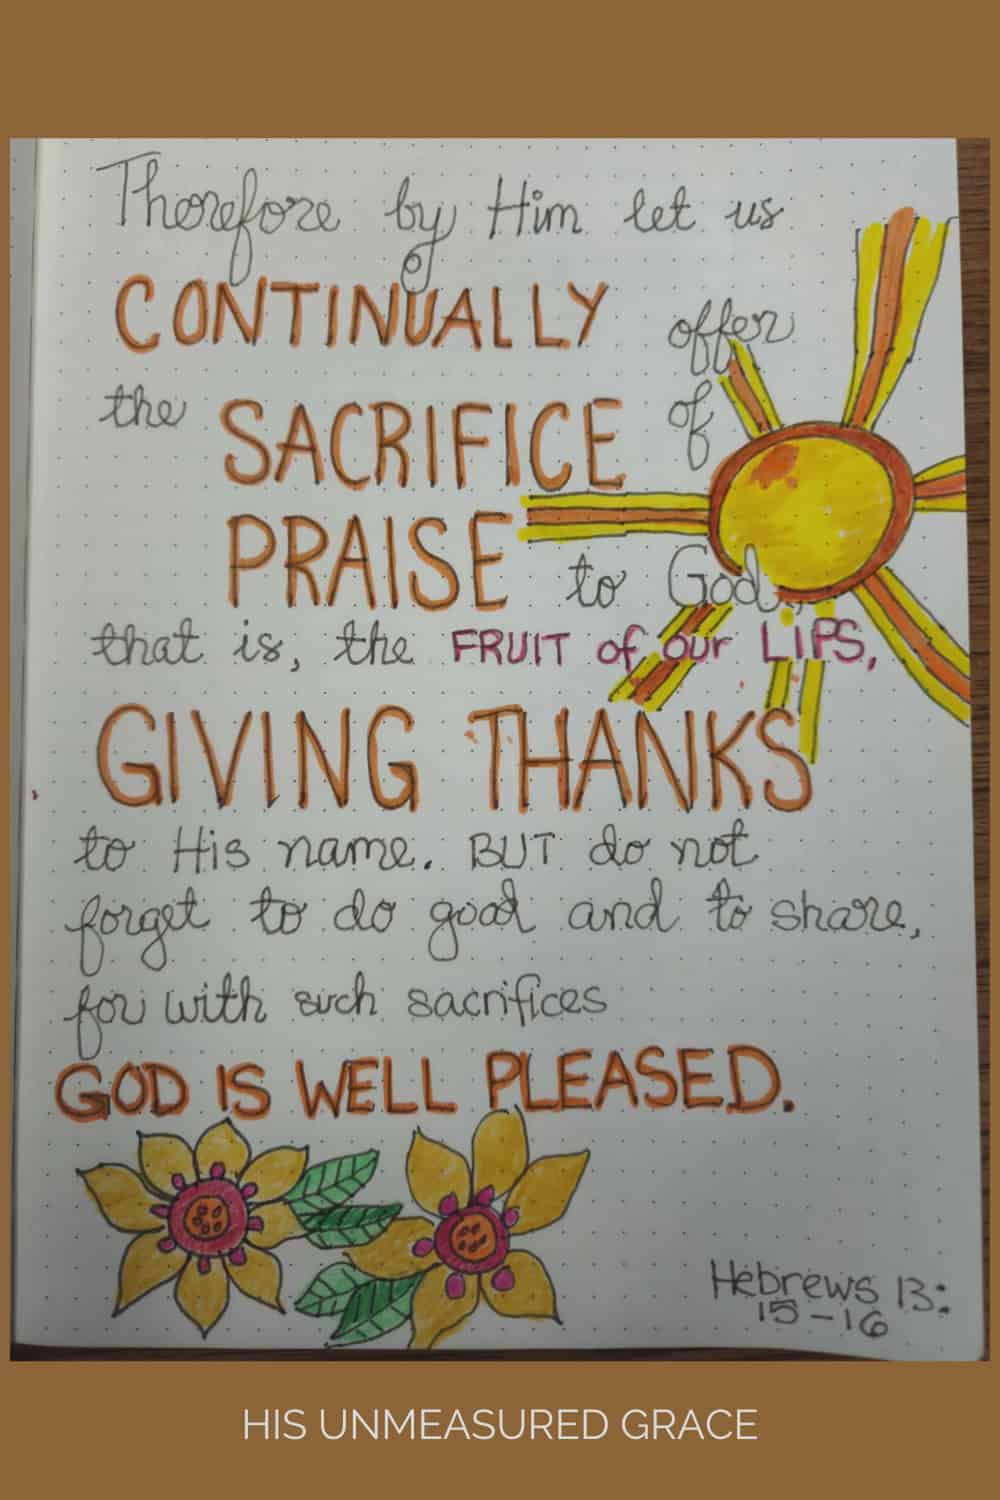 Therefore by Him let us
CONTINUALLY offer
the SACRIFICE of
PRAISE to God,
that is, the FRUIT of our LIPS,
GIVING THANKS
to His name. BUT do not
forget to do good and to share,
for with such sacrifices
GOD IS WELL PLEASED.
Hebrews 13:
15-16
HIS UNMEASURED GRACE